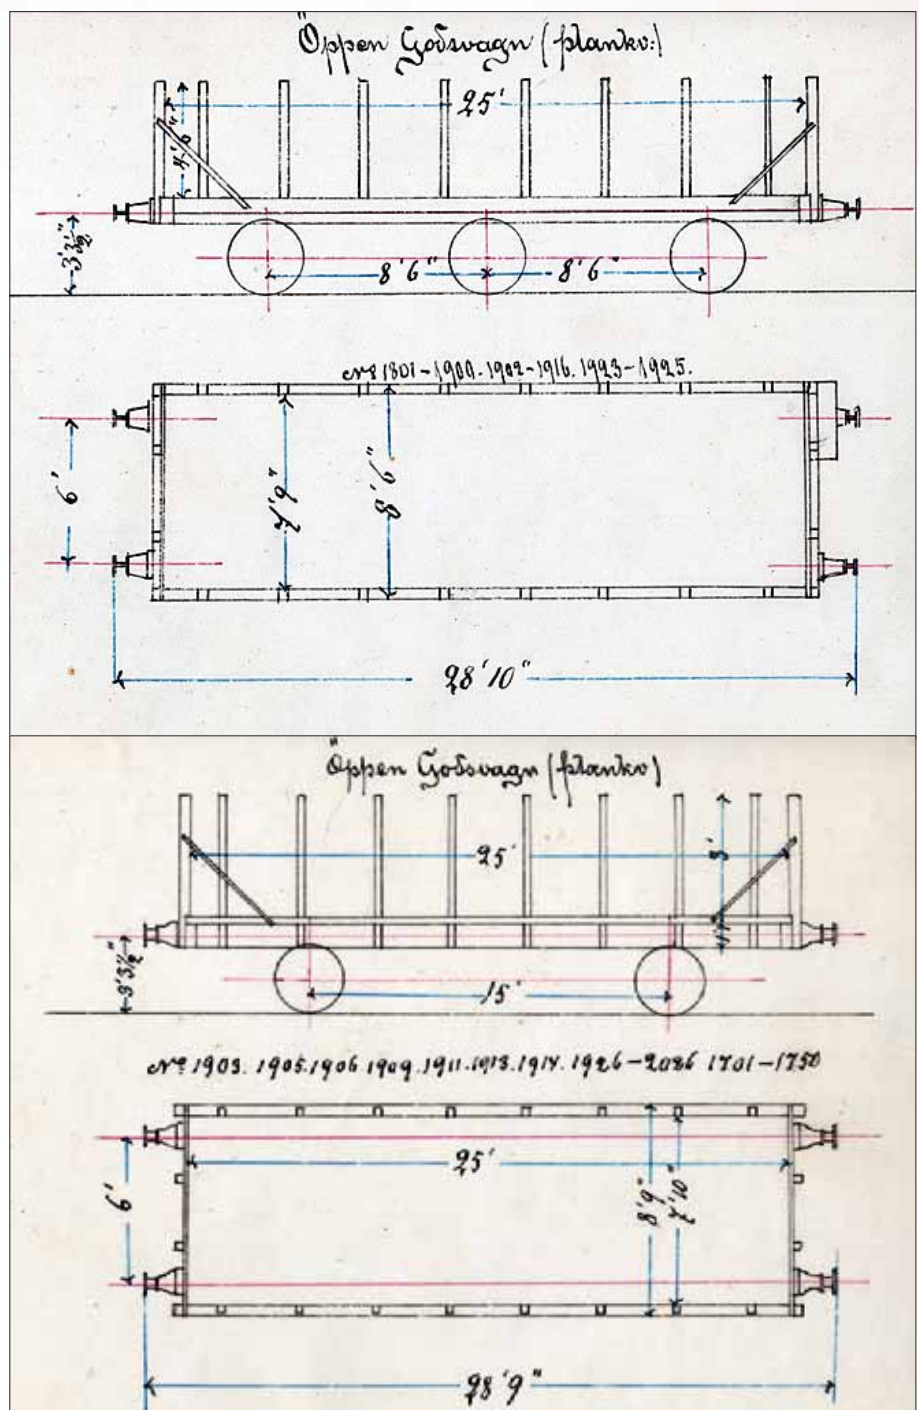 Öppen Godsvagn (plankv:)
25'
4' 6"
3' 3½"
8' 6"
8' 6"
Nos 1801-1900. 1902-1916. 1923-1925.
6'
7' 9"
8' 6"
28' 10"
Öppen Godsvagn (plankv)
25'
3'
1'
3' 3½"
15'
No 1903. 1905. 1906 1909. 1911. 1913. 1914. 1926-2086 1701-1750
25'
6'
8' 9"
7' 10"
28' 9"